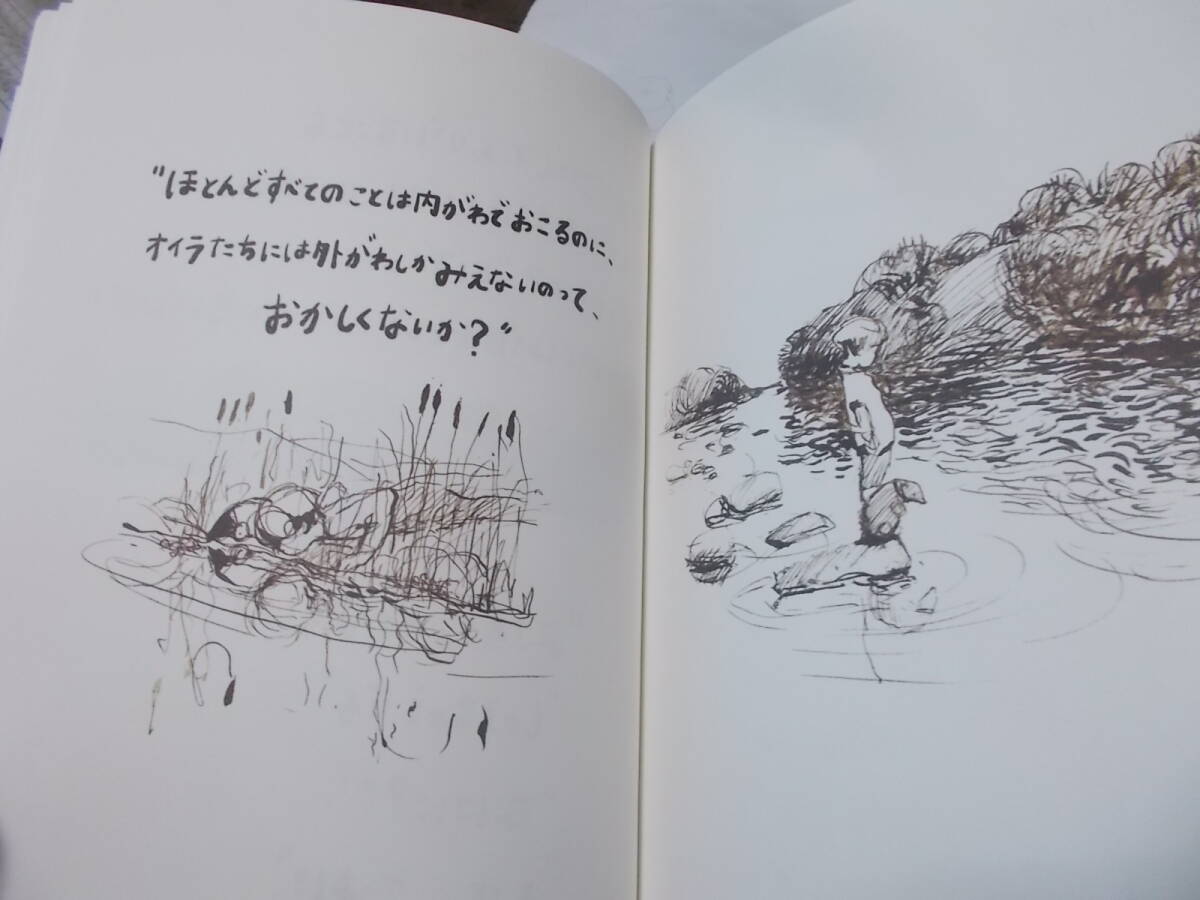 “ほとんどすべてのことは内がわでおこるのに、
オイラたちには外がわしかみえないのって、
おかしくないか？”